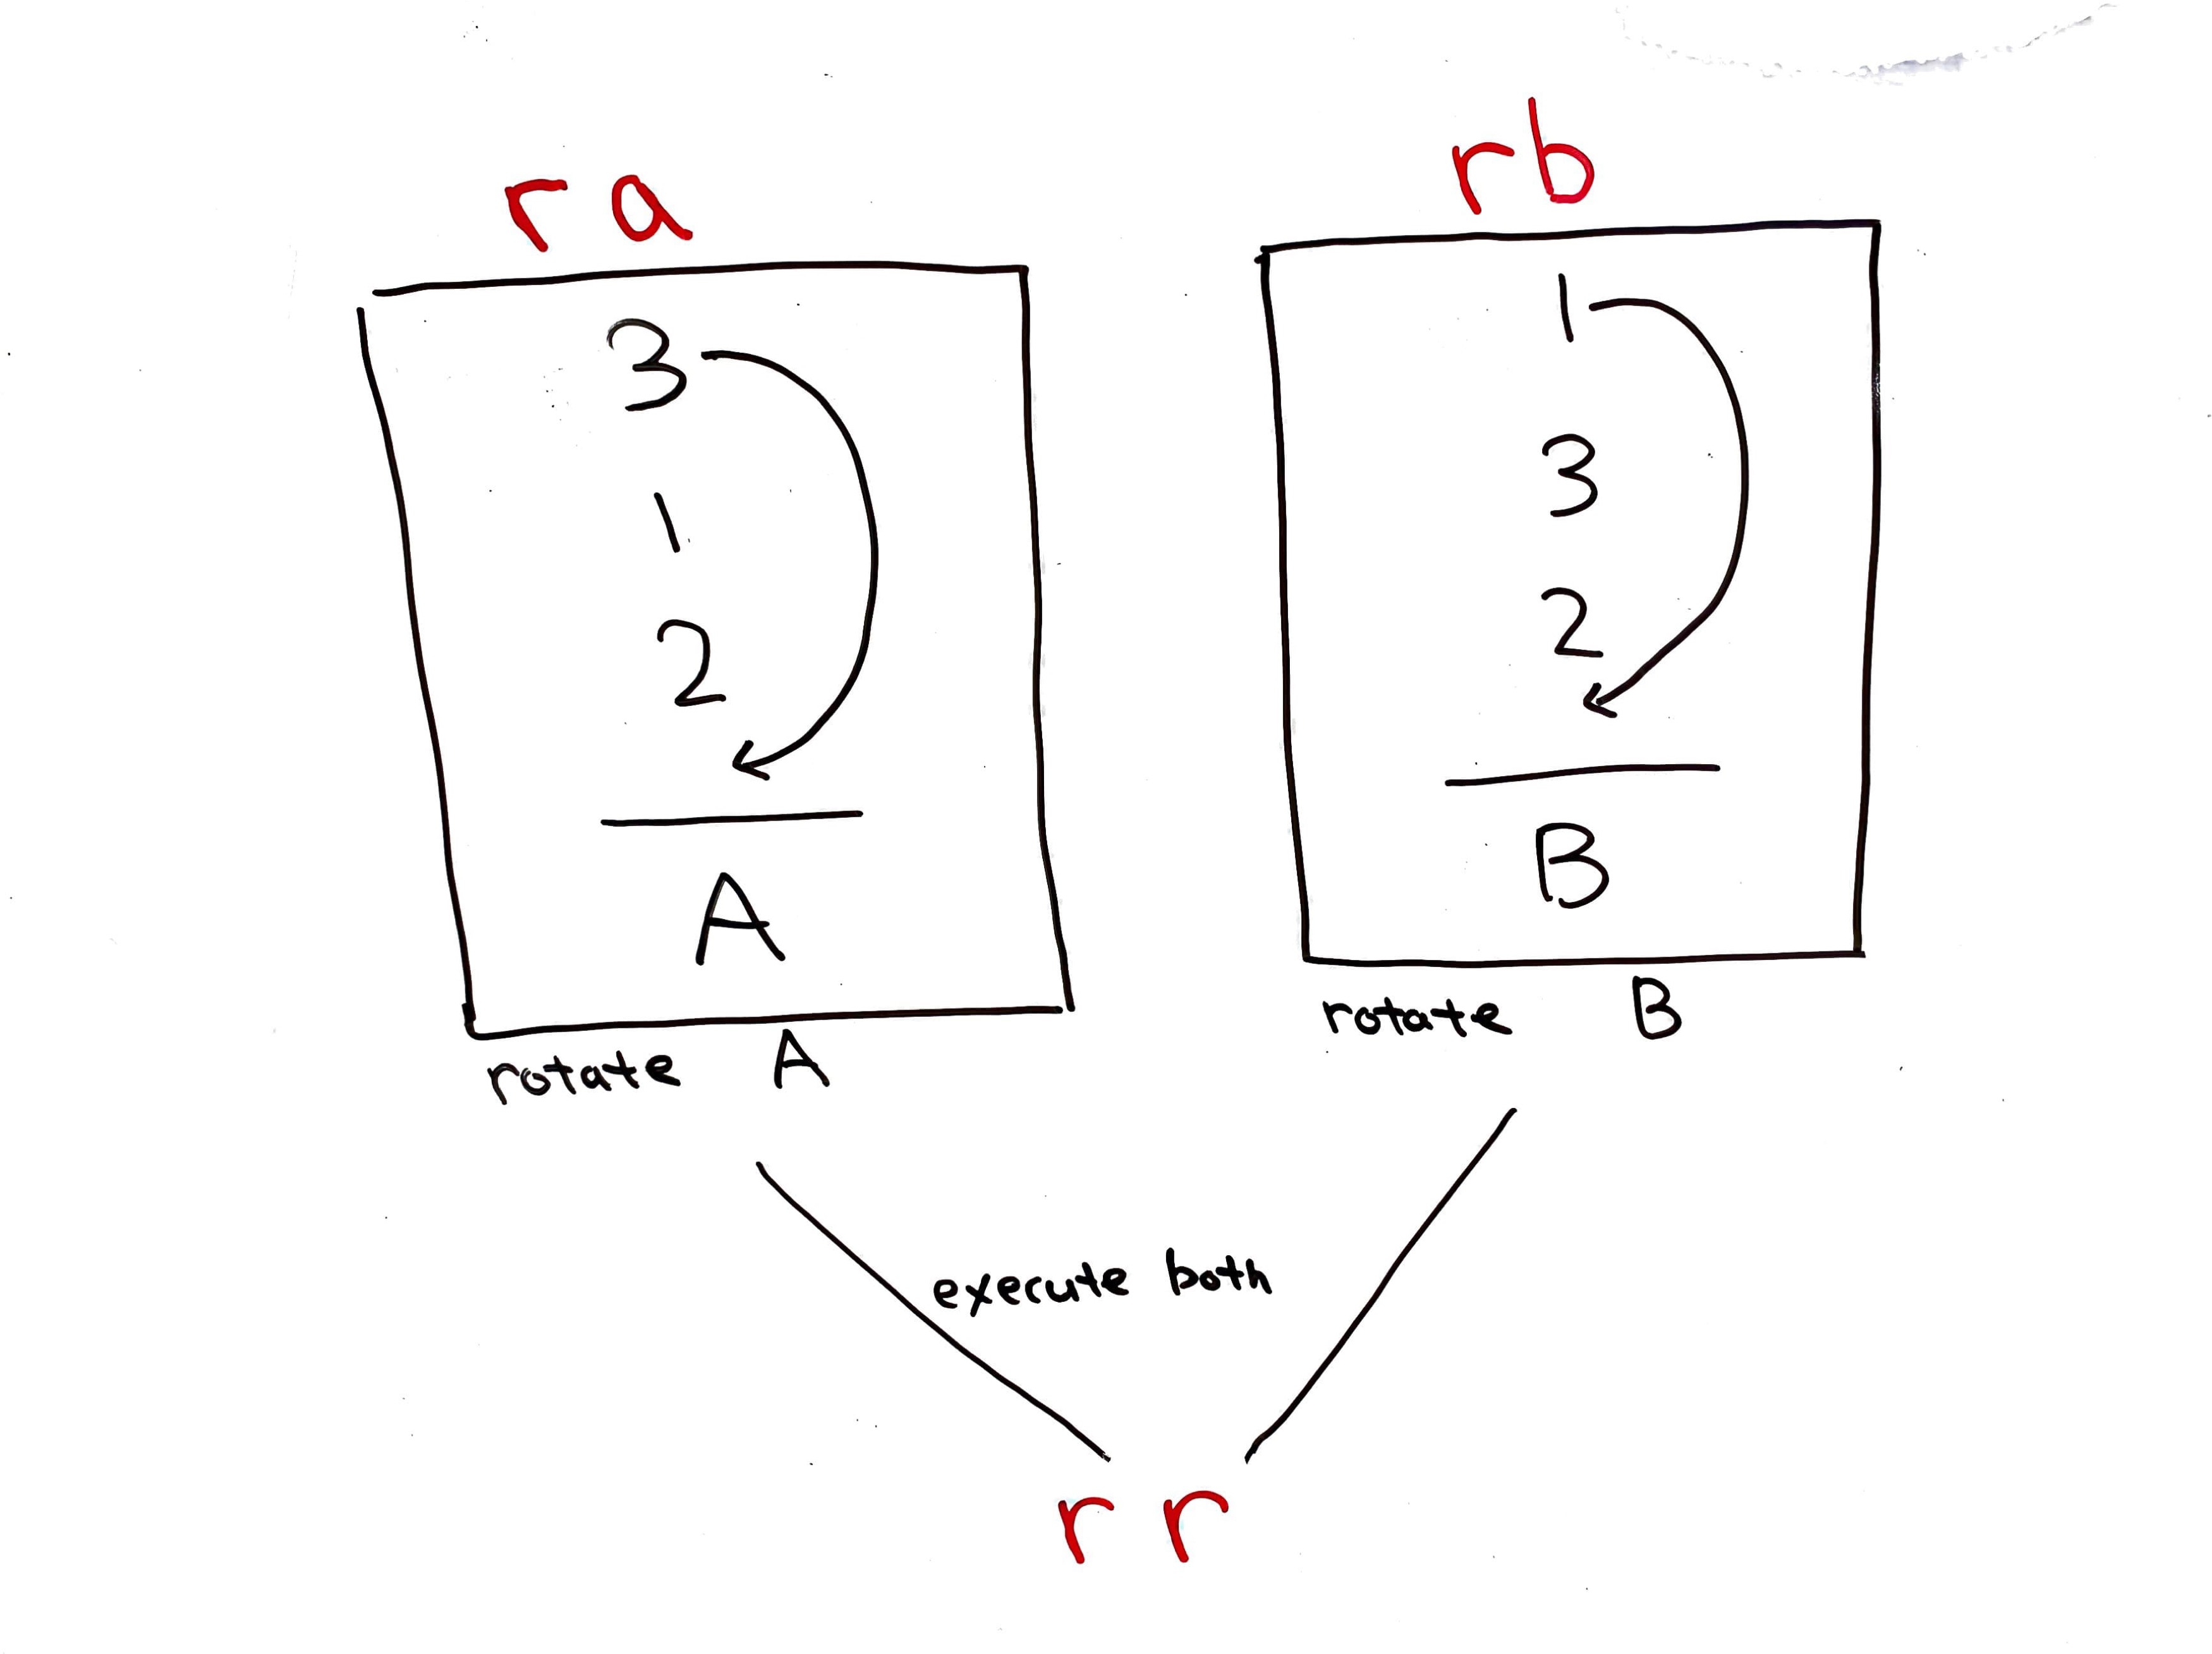 ra
3
1
2
A
rotate A
rb
1
3
2
B
rotate B
execute both
rr